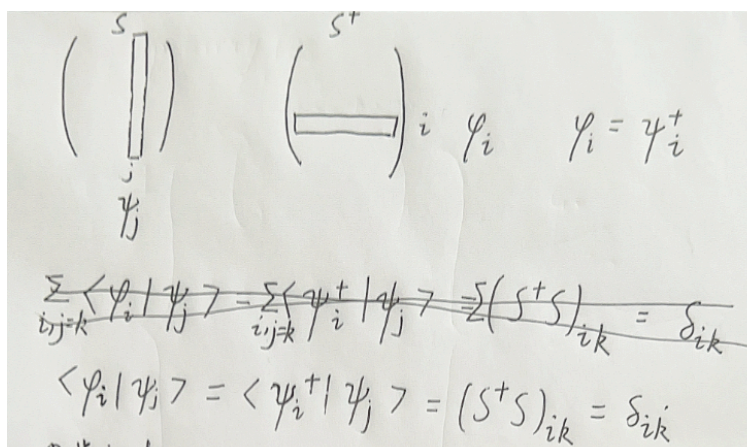 S S⁺
i φ_i φ_i = ψ_i⁺
j
ψ_j
Σ_{i,j=k} <φ_i|ψ_j> = Σ_{i,j=k} <ψ_i⁺|ψ_j> = Σ(S⁺S)_{ik} = δ_{ik}
<φ_i|ψ_j> = <ψ_i⁺|ψ_j> = (S⁺S)_{ik} = δ_{ik}